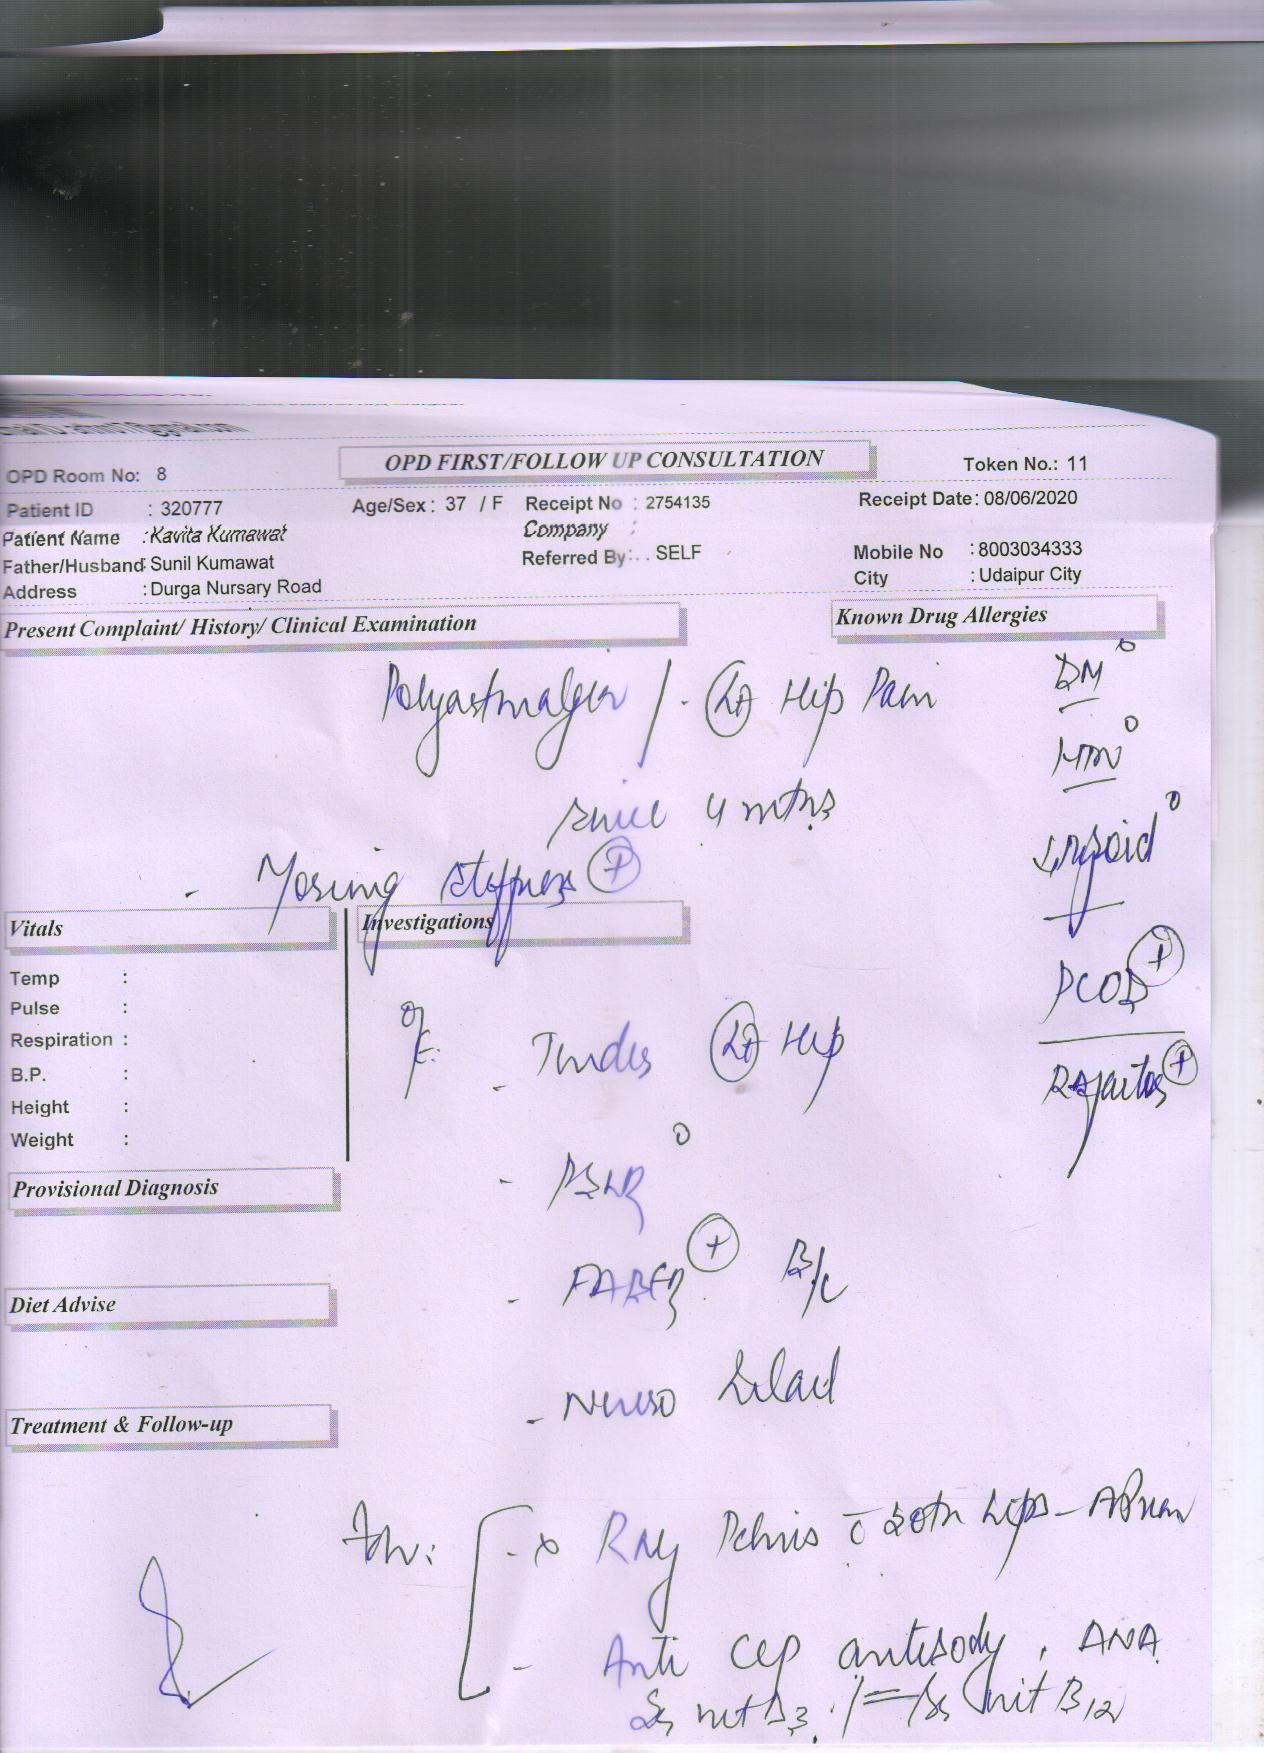 OPD Room No: 8
OPD FIRST/FOLLOW UP CONSULTATION
Token No.: 11
Patient ID : 320777
Age/Sex : 37 / F
Receipt No : 2754135
Receipt Date : 08/06/2020
Patient Name : Kavita Kumawat
Company :
Father/Husband: Sunil Kumawat
Referred By: . . SELF
Mobile No : 8003034333
Address : Durga Nursary Road
City : Udaipur City
Present Complaint/ History/ Clinical Examination
Known Drug Allergies
/ - Lt Hip Pain
since 4 mths
- Morning stiffness +
DM o
HTN o
Thyroid o
PCOD +
Vitals
Investigations
Temp :
Pulse :
Respiration :
B.P. :
Height :
Weight :
O/E:
- Tender Lt Hip
- PSLR o
- FABER + B/L
- Neuro Intact
Provisional Diagnosis
Diet Advise
Treatment & Follow-up
Adv: - X Ray Pelvis c both hips -
- Anti CCP antibody, ANA
Vit D3 Vit B12